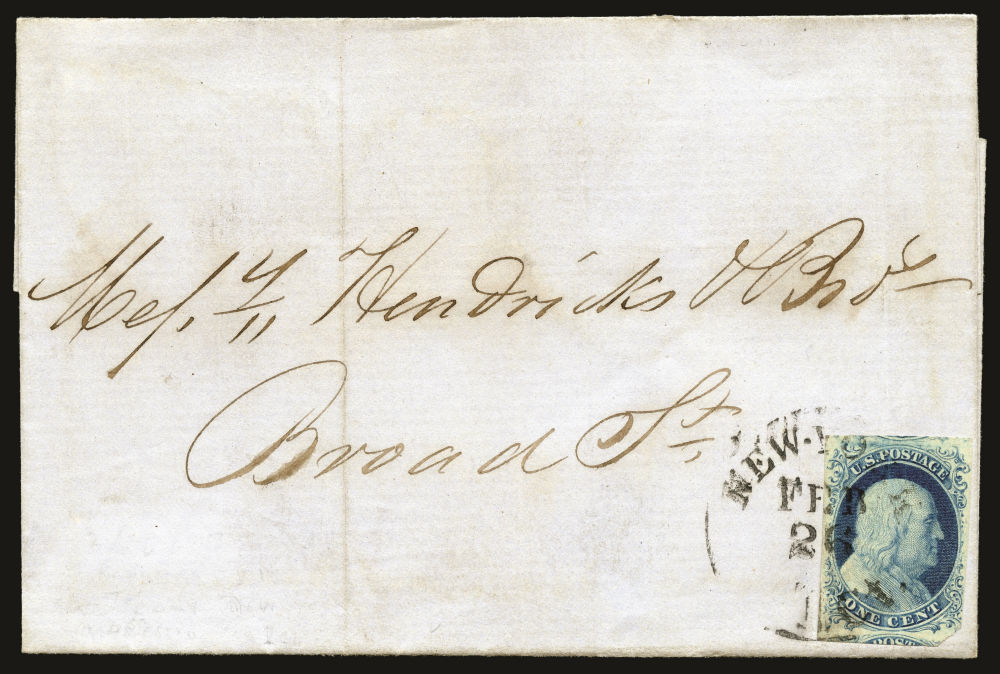 Mess. H Hendricks & Bros
Broad St.
NEW-YO
FEB
U.S. POSTAGE
ONE CENT
POST